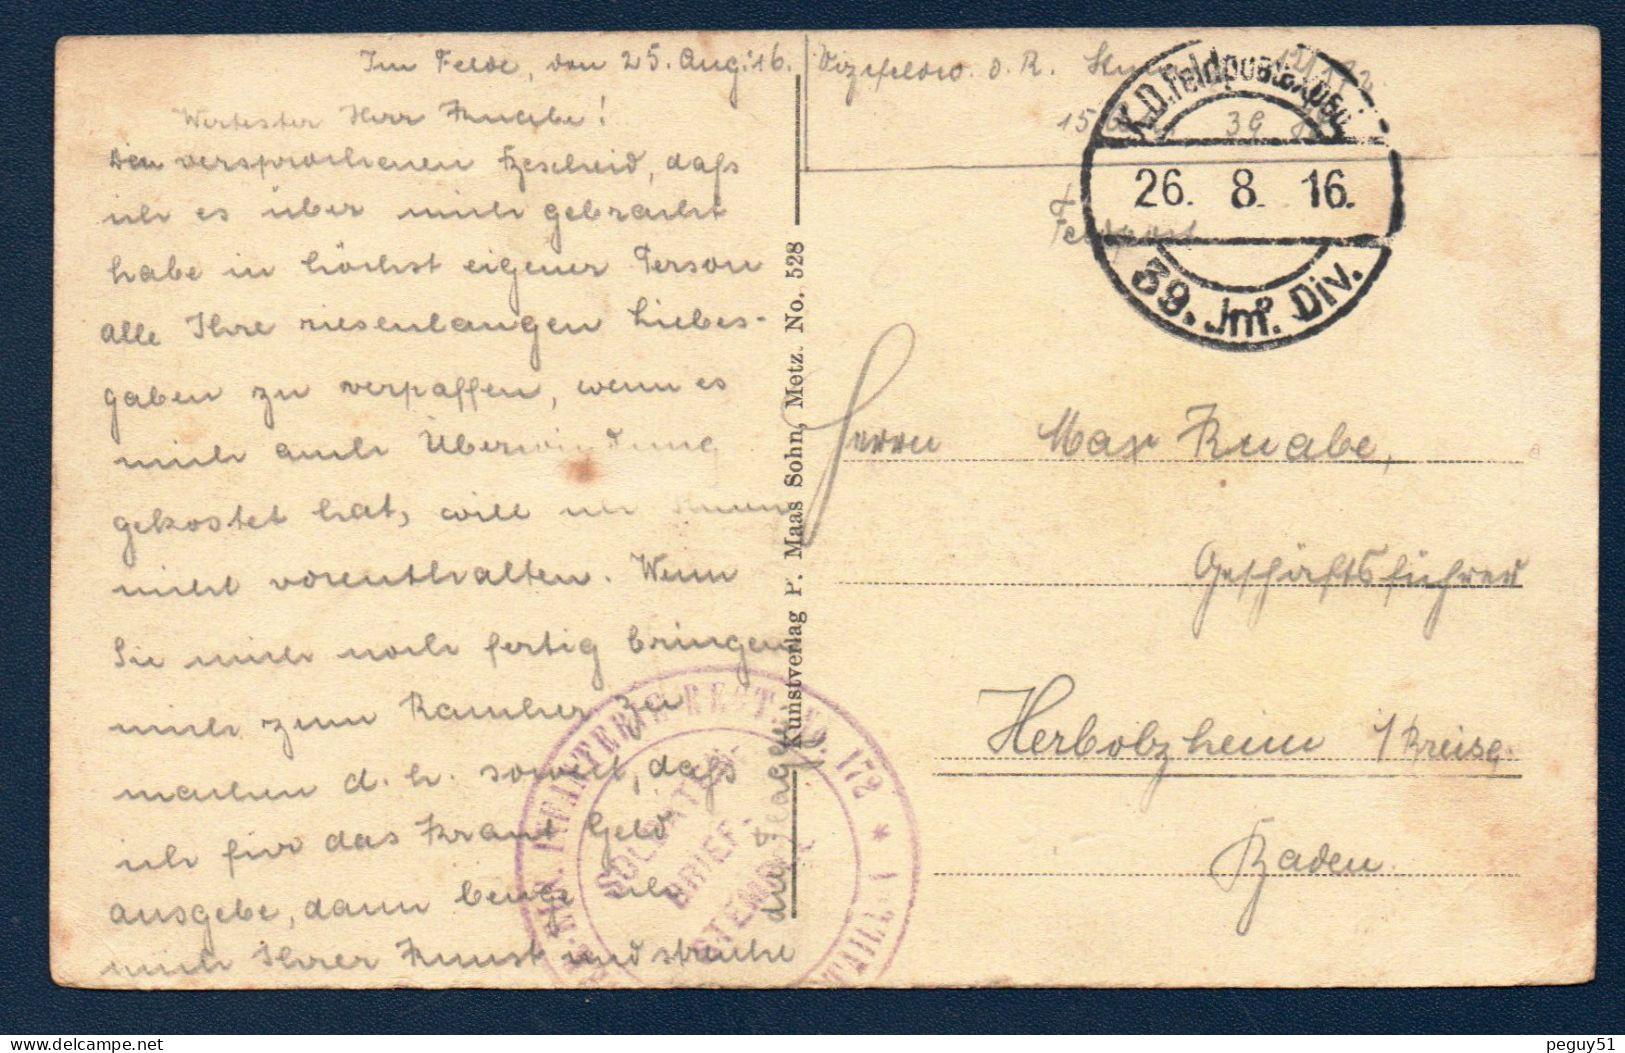 Im Felde, den 25. Aug. 16.
Wertester Herr Knabe!
Den versprochenen Bescheid, daß
ich es über mich gebracht
habe in höchst eigener Person
alle Ihre riesenlangen Liebes-
gaben zu verpaffen, wenn es
mich auch Überwindung
gekostet hat, will ich Ihnen
nicht vorenthalten. Wenn
Sie mich noch fertig bringen
mich zum Raucher zu
machen d. h. soweit, daß
ich für das Kraut Geld
ausgebe, dann beuge ich
mich Ihrer Kunst und streiche
die Flagge
Kunstverlag P. Maas Sohn, Metz. No. 528
Vizefeldw. d. R. 12/172
39
Feldpost
K.D. Feldpostexped.
26. 8. 16.
39. Inf. Div.
Herrn Max Knabe,
Geschäftsführer
Herbolzheim i/Breisg.
Baden.
INFANTERIE-REGT. No. 172 *
SOLDATEN-
BRIEF-
STEMPEL